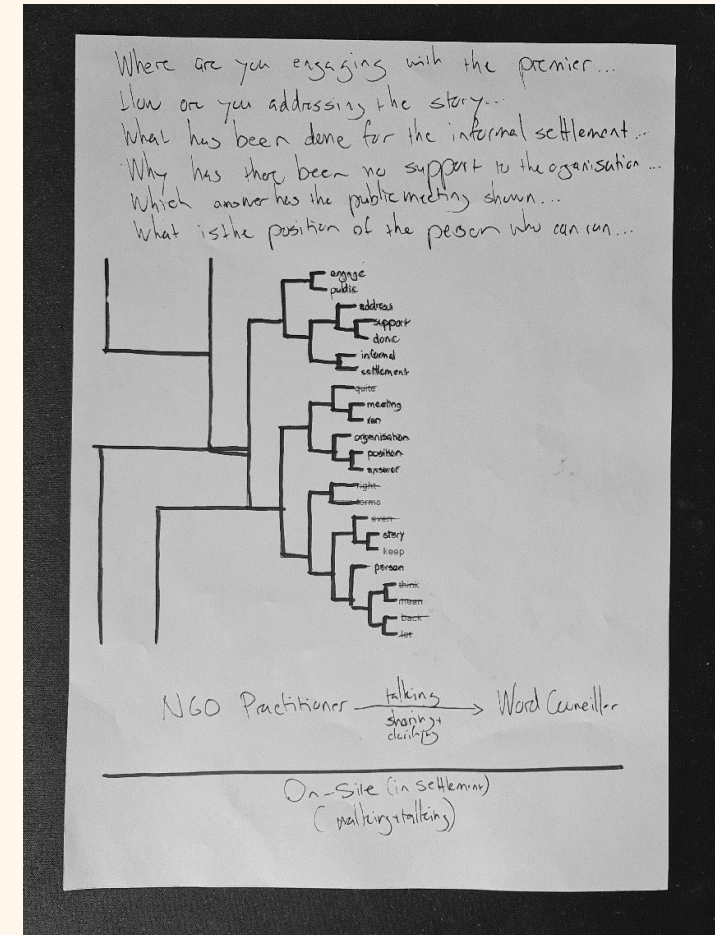 Where are you engaging with the premier...
How are you addressing the story...
What has been done for the informal settlement...
Why has there been no support to the organisation...
Which answer has the public meeting shown...
What is the position of the person who can run...
engage
public
address
support
done
informal
settlement
quite
meeting
ran
organisation
position
answer
right
terms
even
story
keep
person
think
mean
back
let
NGO Practitioner
talking
sharing +
Ward Councillor
On-Site (in settlement)
(walking+talking)